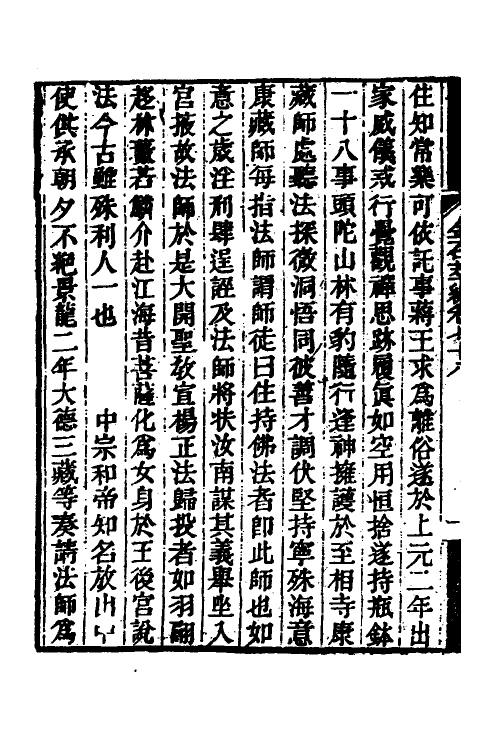 住知常樂可依託事蔣王求爲離俗遂於上元二年出
家威儀戒行覺觀禪思跡履眞如空用恒捨遂持瓶鉢
一十八事頭陀山林有豹隨行逢神擁護於至相寺康
藏師處聽法探微洞悟同彼善才調伏堅持寧殊海意
康藏師每指法師謂師徒曰住持佛法者卽此師也如
意之歲淫刑肆逞誣及法師將狀汝南謀其義舉坐入
宮掖故法師於是大開聖敎宣楊正法歸投者如羽翮
趍林藪若鱗介赴江海昔菩薩化爲女身於王後宮說
法今古雖殊利人一也 中宗和帝知名放出
使供承朝夕不絕景龍二年大德三藏等奏請法師爲